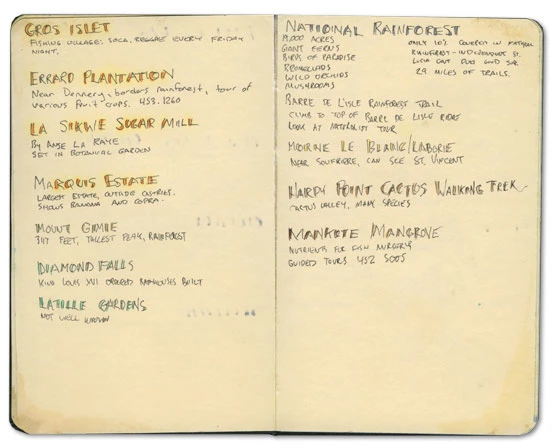 GROS ISLET
FISHING VILLAGE: SOCA, REGGAE EVERY FRIDAY
NIGHT.
ERRARD PLANTATION
Near Dennery, borders rainforest, tour of
various fruit crops. 453-1260
LA SIKWE SUGAR MILL
BY ANSE LA RAYE
SET IN BOTANICAL GARDEN
MARQUIS ESTATE
LARGEST ESTATE, OUTSIDE CASTRIES.
SHOWS BANANA AND COPRA.
MOUNT GIMIE
3117 FEET, TALLEST PEAK, RAINFOREST
DIAMOND FALLS
KING LOUIS XVI ORDERED BATHHOUSES BUILT
LATILLE GARDENS
NOT WELL KNOWN
NATIONAL RAINFOREST
19,000 ACRES
GIANT FERNS
BIRDS OF PARADISE
BROMELIADS
WILD ORCHIDS
MUSHROOMS
ONLY 10% COVERED IN
RAINFOREST - INDEPENDENT ST.
LUCIA CAN'T
29 MILES OF TRAILS.
BARRE DE L'ISLE RAINFOREST TRAIL
CLIMB TO TOP OF BARRE DE L'ISLE RIDGE
LOOK AT NATURALIST TOUR
MORNE LE BLANC/LABORIE
NEAR SOUFRIERE, CAN SEE ST. VINCENT
HARDY POINT CACTUS WALKING TREK
CACTUS VALLEY, MANY SPECIES
MANKOTE MANGROVE
NUTRIENTS FOR FISH NURSERY
GUIDED TOURS 452 5005